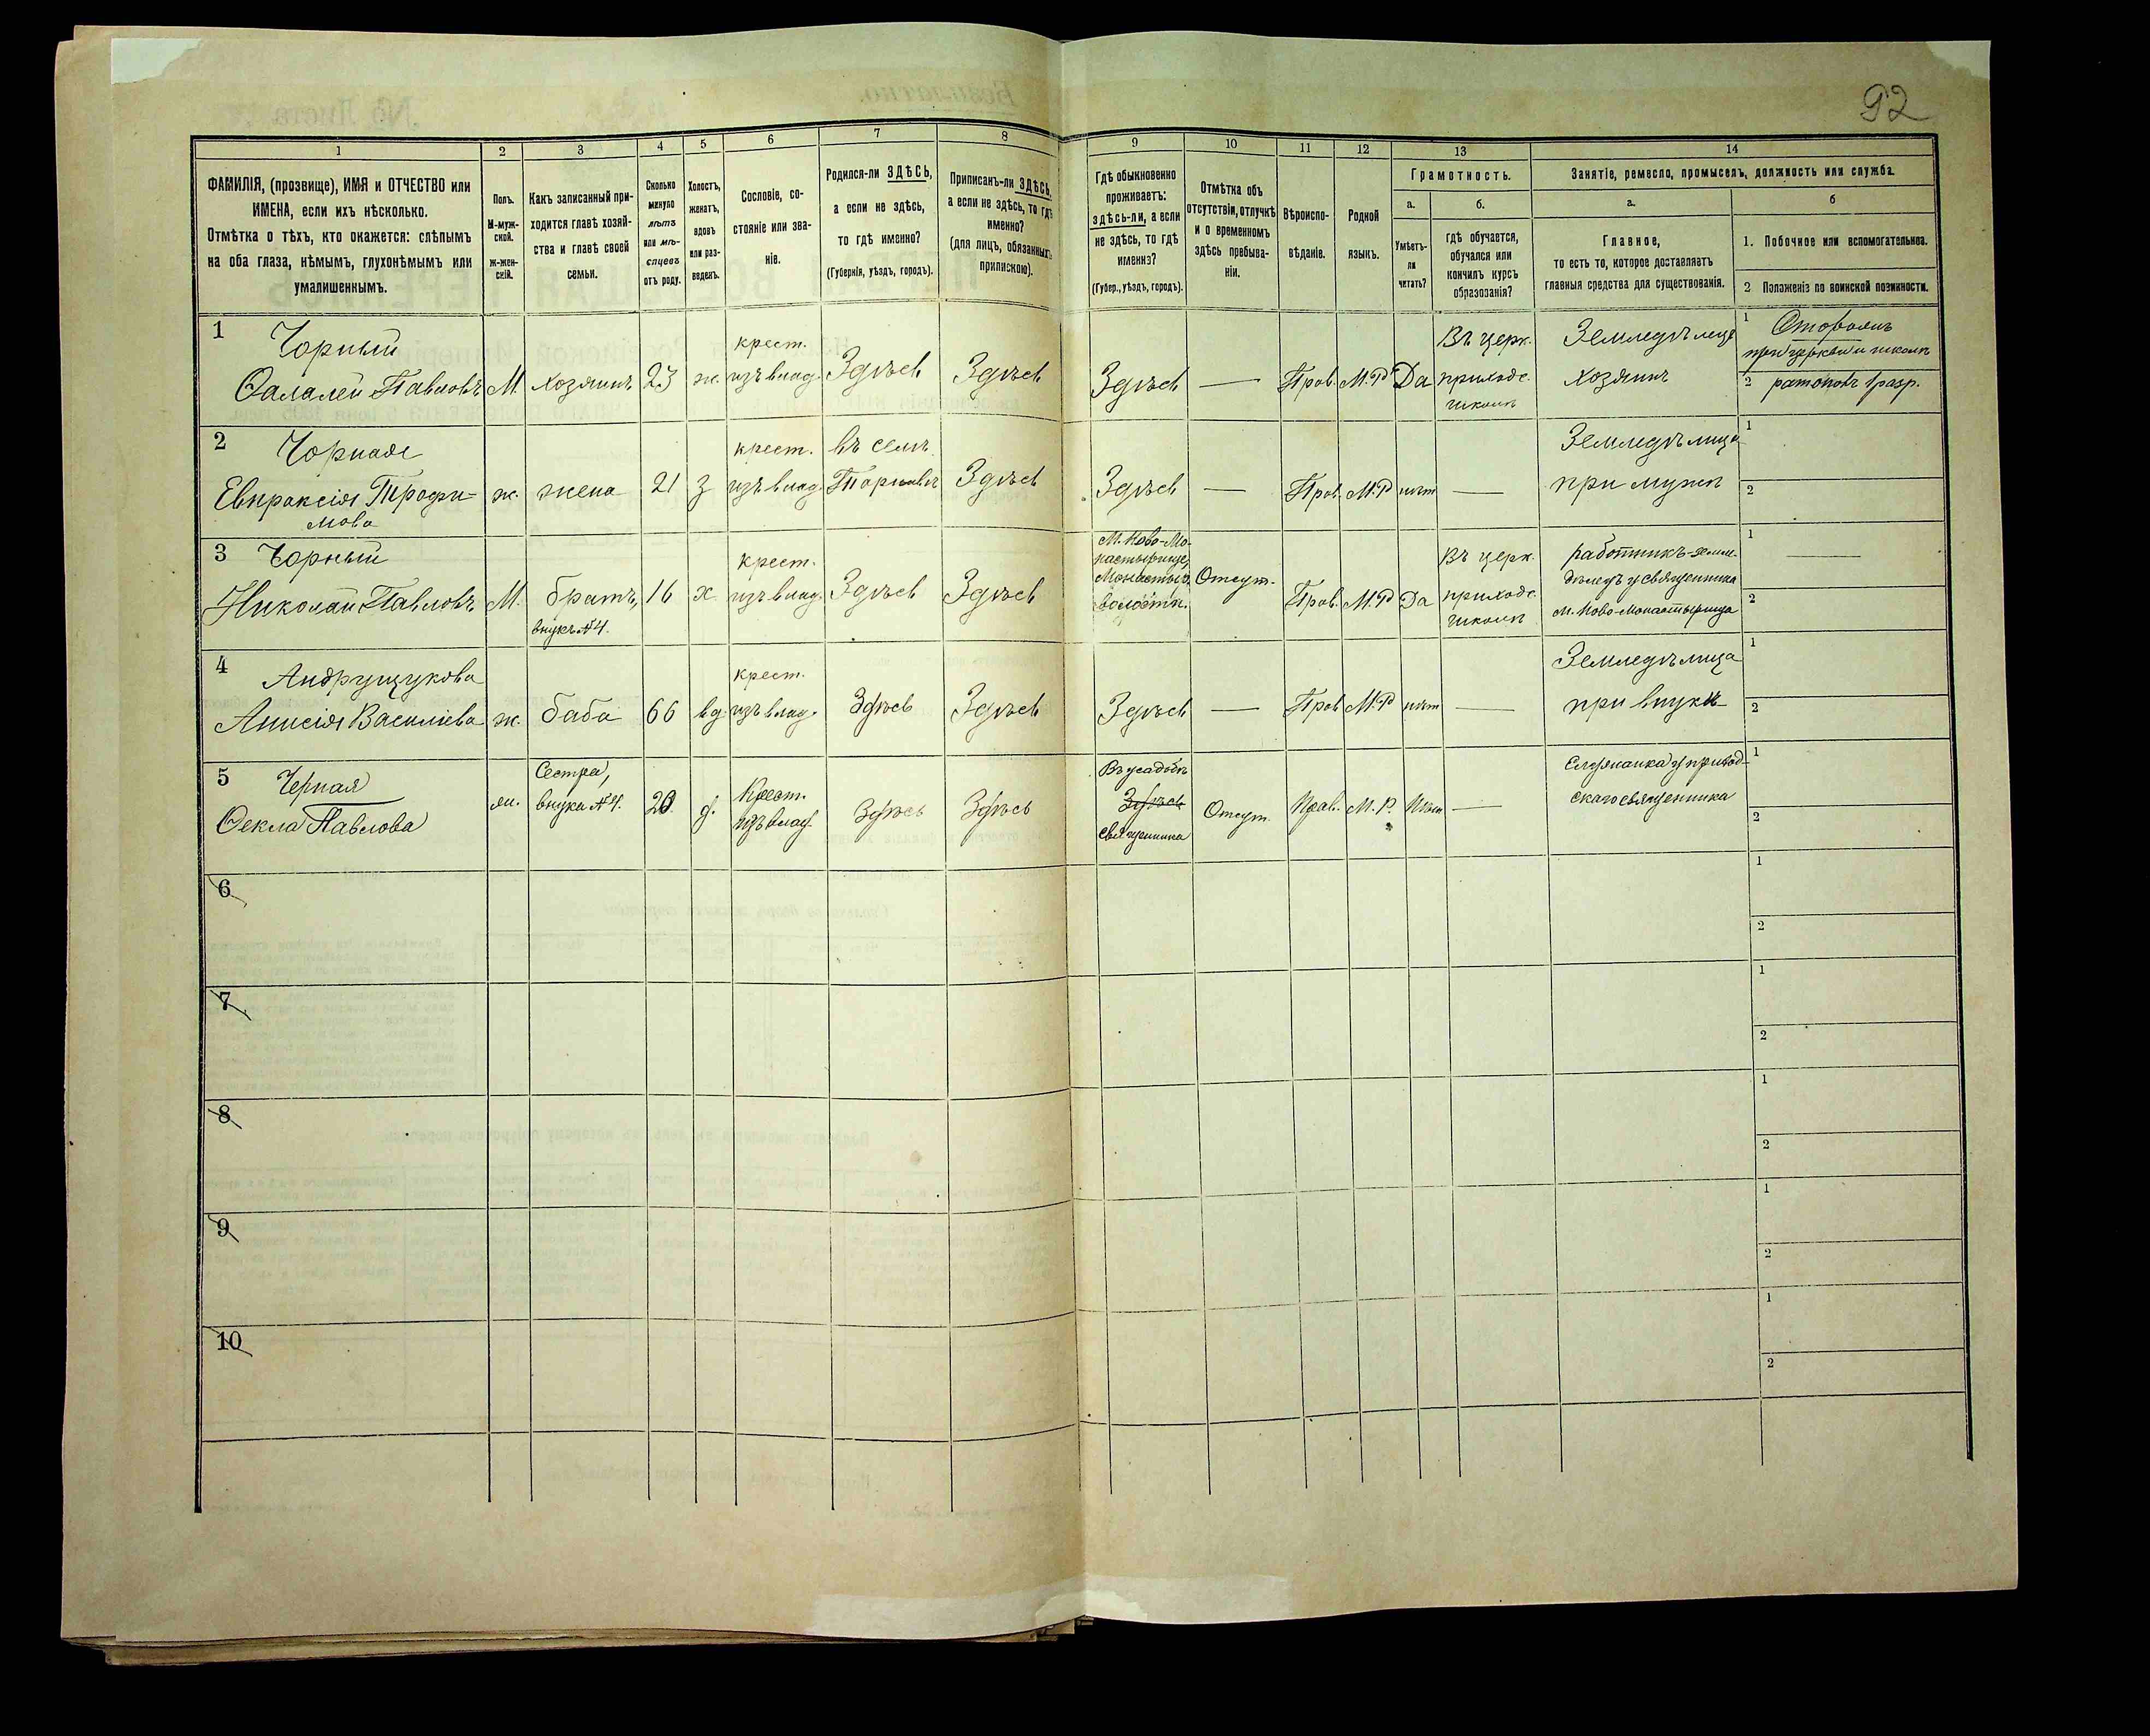 92
1 2 3 4 5 6 7 8 9 10 11 12 13 14
ФАМИЛІЯ, (прозвище), ИМЯ и ОТЧЕСТВО или
ИМЕНА, если ихъ нѣсколько.
Отмѣтка о тѣхъ, кто окажется: слѣпымъ
на оба глаза, нѣмымъ, глухонѣмымъ или
умалишеннымъ.
Полъ.
М-муж-
ской.
ж-жен-
скій.
Какъ записанный при-
ходится главѣ хозяй-
ства и главѣ своей
семьи.
Сколько
минуло
лѣтъ
или мѣ-
сяцевъ
отъ роду.
Холостъ,
женатъ,
вдовъ
или раз-
веденъ.
Сословіе, со-
стояніе или зва-
ніе.
Родился-ли ЗДѢСЬ,
а если не здѣсь,
то гдѣ именно?
(Губернія, уѣздъ, городъ).
Приписанъ-ли ЗДѢСЬ,
а если не здѣсь, то гдѣ
именно?
(для лицъ, обязанныхъ
припискою).
Гдѣ обыкновенно
проживаетъ:
здѣсь-ли, а если
не здѣсь, то гдѣ
именно?
(Губер., уѣздъ, городъ).
Отмѣтка объ
отсутствіи, отлучкѣ
и о временномъ
здѣсь пребыва-
ніи.
Вѣроиспо-
вѣданіе.
Родной
языкъ.
Грамотность.
а.
Умѣетъ-
ли
читать?
б.
гдѣ обучается,
обучался или
кончилъ курсъ
образованія?
Занятіе, ремесло, промыселъ, должность или служба.
а.
Главное,
то есть то, которое доставляетъ
главныя средства для существованія.
б
1. Побочное или вспомогательное.
2 Положеніе по воинской повинности.
1 Чорный
Фалалей Павловъ
М.
хозяинъ
23
ж.
крест.
изъ влад.
Здѣсь
Здѣсь
Здѣсь
—
Прав.
М.Р
Да
Въ церк.
приходс.
школѣ
Земледѣлецъ
хозяинъ
1
при церкви и школѣ
2 ратникъ 1 разр.
2 Чорная
Евпраксія Трофи-
мова
ж.
жена
21
з
крест.
изъ влад.
въ селѣ
Здѣсь
Здѣсь
—
Прав.
М.Р
нѣт
—
Земледѣлица
при мужѣ
1
2
3 Чорный
Николай Павловъ
М.
братъ,
внукъ №4.
16
х
крест.
изъ влад.
Здѣсь
Здѣсь
М. Ново-Мо-
настырище,
Монастыр.
волости.
Отсут.
Прав.
М.Р
Да
Въ церк.
приходс.
школѣ
работникъ-земле-
дѣлецъ у священника
м. Ново-Монастырища
1 —
2
4 Андрущукова
Анисія Василіева
ж.
баба
66
вд.
крест.
изъ влад.
Здѣсь
Здѣсь
Здѣсь
—
Прав
М.Р
нѣт
—
Земледѣлица
при внукѣ
1
2
5 Черная
Фекла Павлова
ж.
Сестра,
внука №4.
20
д.
Крест.
изъ влад.
Здѣсь
Здѣсь
Въ усадьбѣ
Здѣсь
священника
Отсут.
Прав.
М.Р.
Нѣт
—
Служанка у приход-
скаго священника
1
2
6
1
2
7
1
2
8
1
2
9
1
2
10
1
2